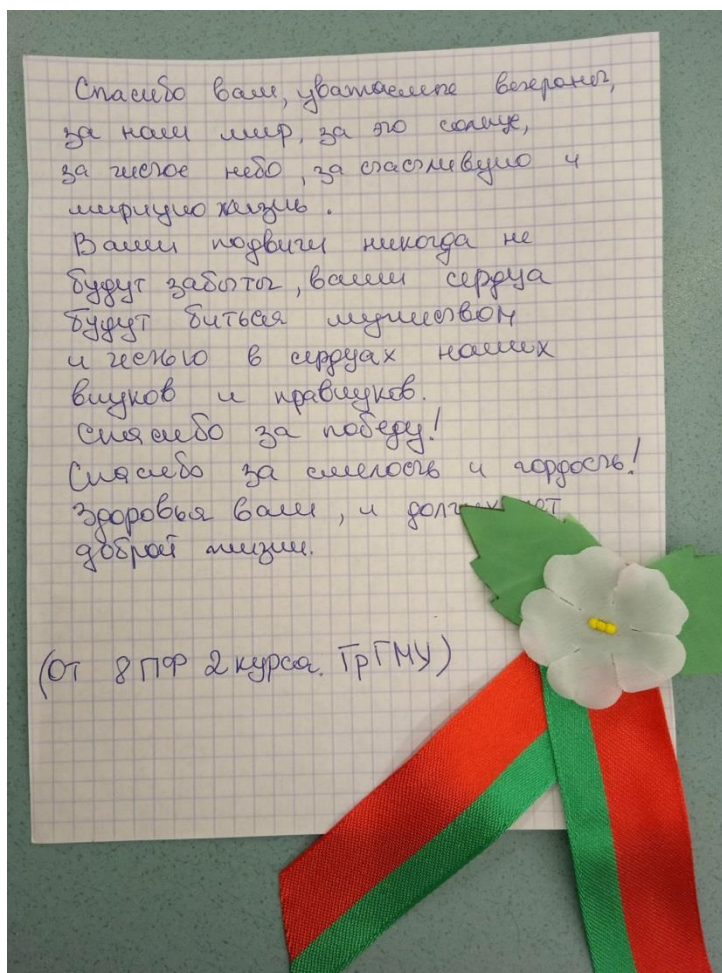 Спасибо вам, уважаемые ветераны,
за наш мир, за это солнце,
за чистое небо, за счастливую и
мирную жизнь.
Ваши подвиги никогда не
будут забыты, ваши сердца
будут биться мужеством
и честью в сердцах наших
внуков и правнуков.
Спасибо за победу!
Спасибо за смелость и гордость!
Здоровья вам, и долгих лет
доброй жизни.
(От 8 ПФ 2 курса. ГрГМУ)